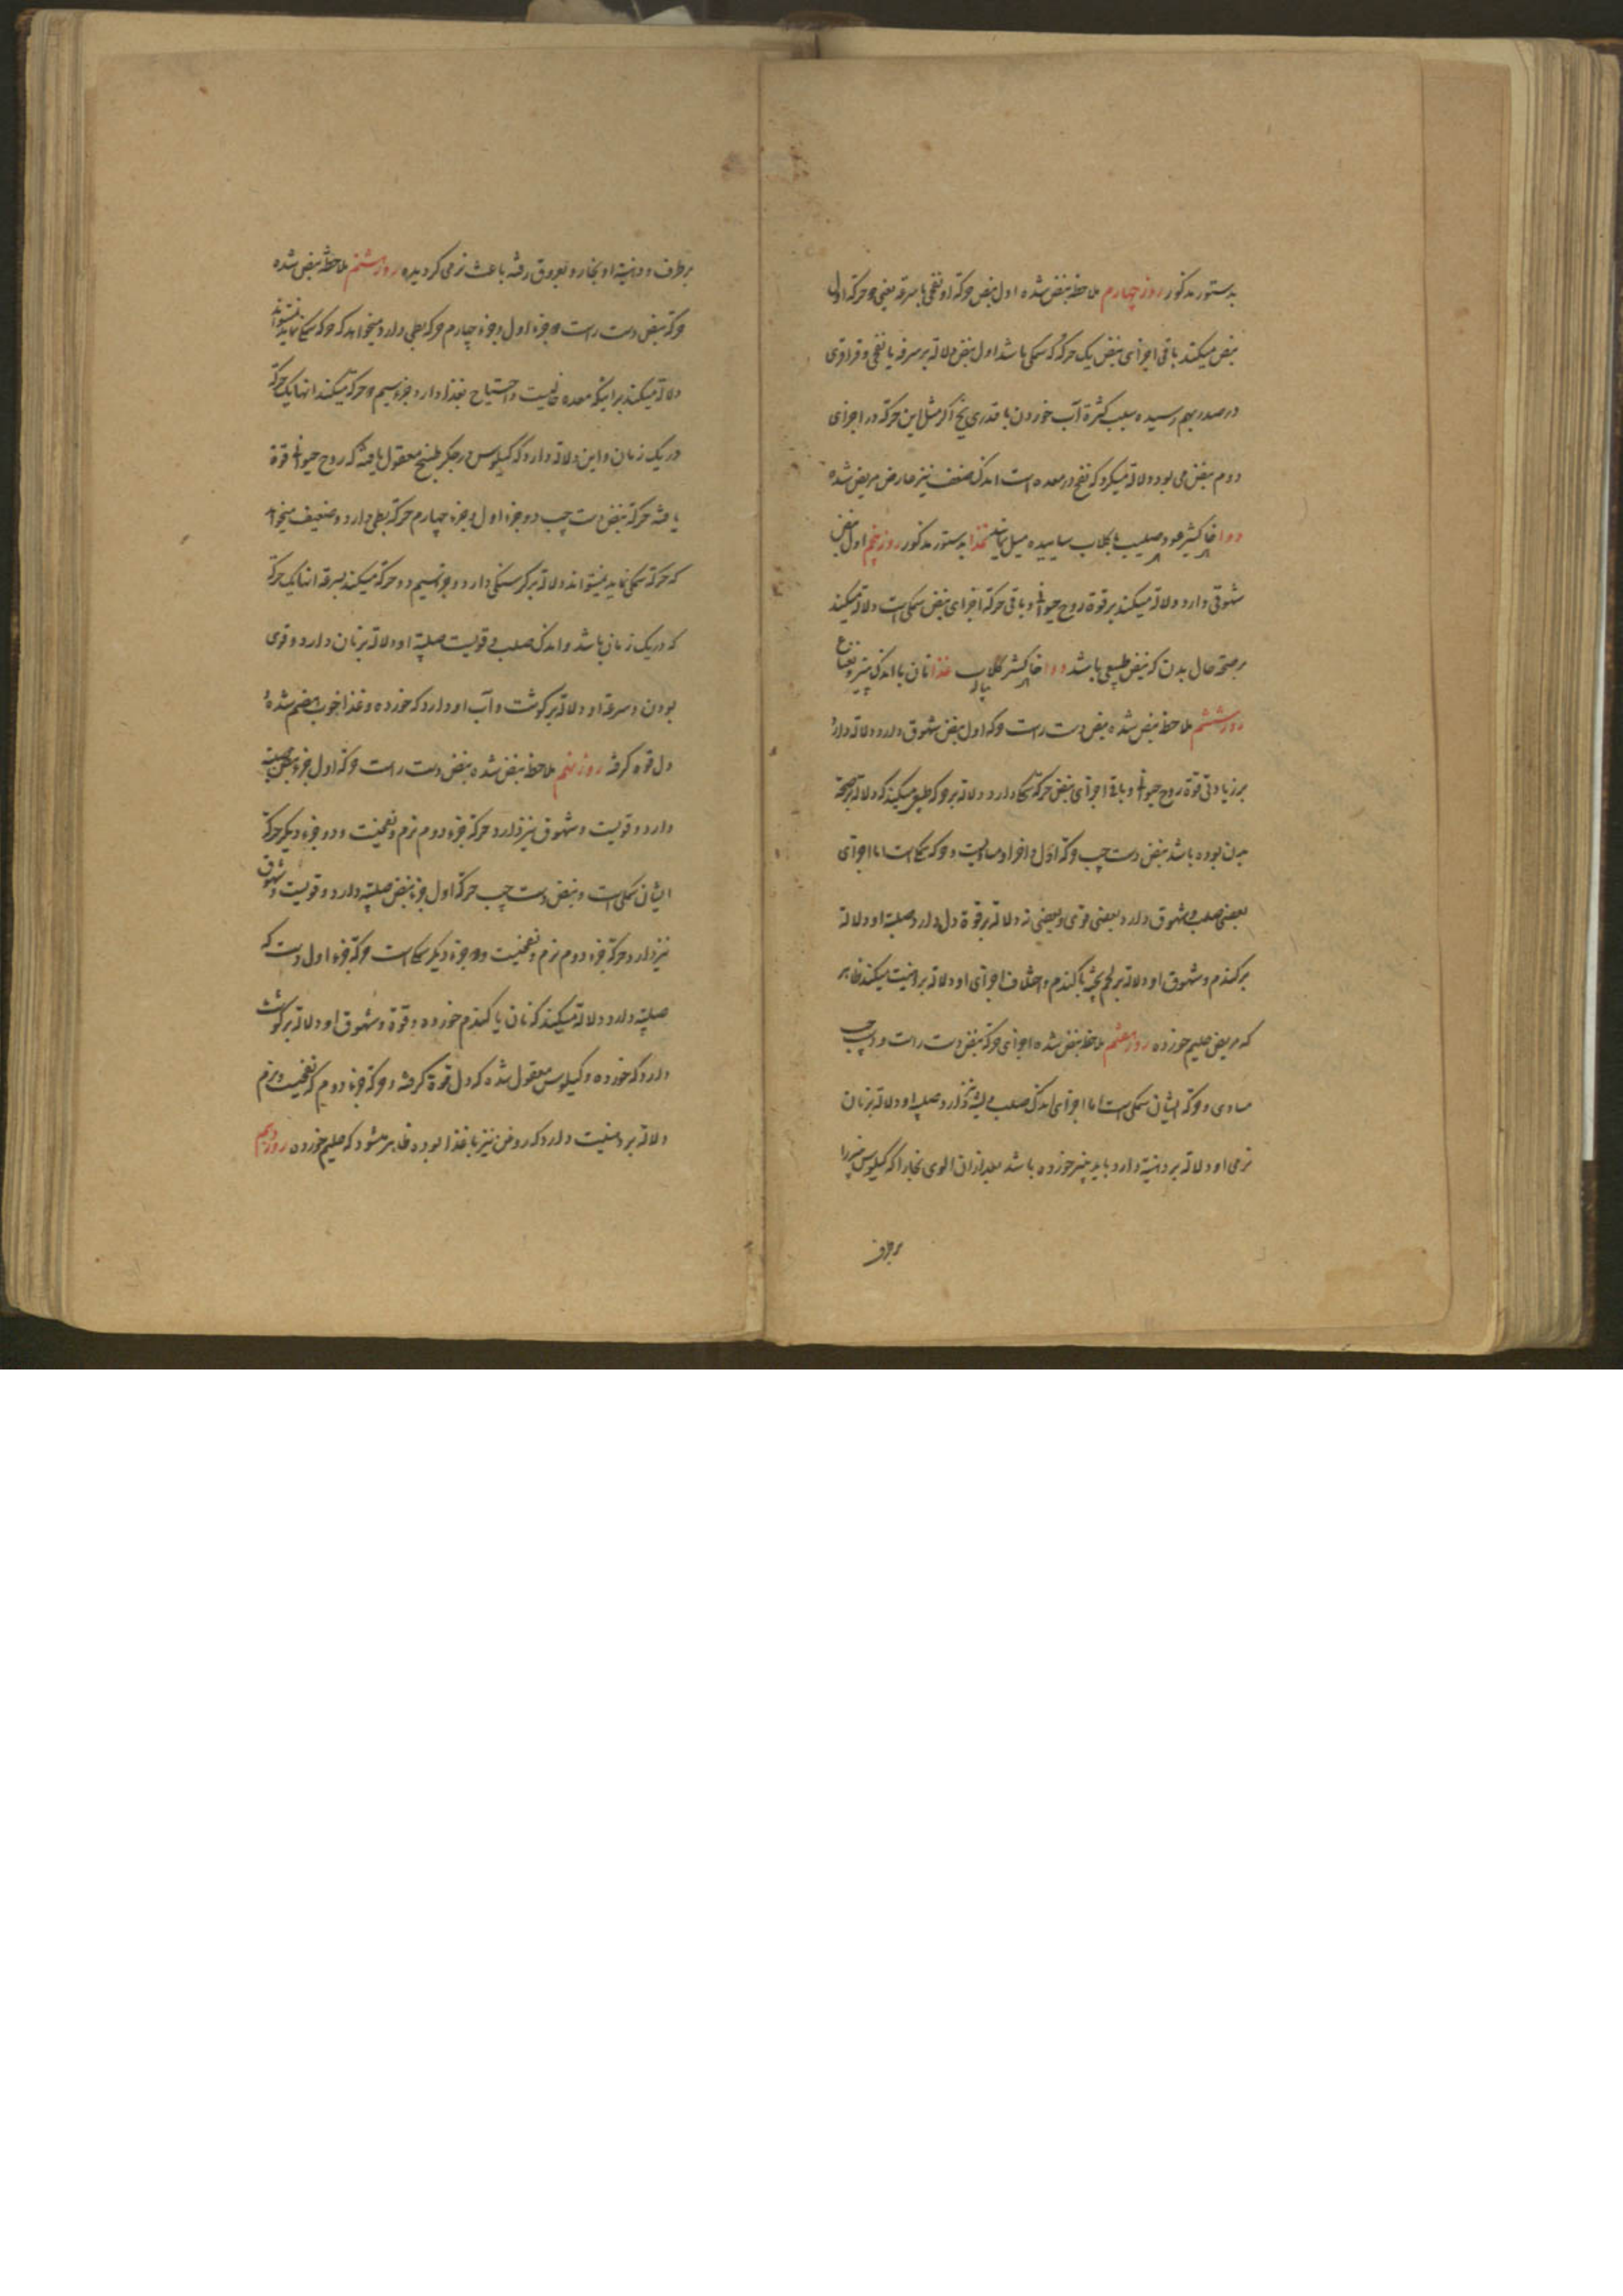 بدستور مذکور روز چهارم ملاحظه نبض شده اول نبض حرکة او نفخی با سرعة یعنی دو حرکة اول
نبض میکند باقی اجزای نبض یک حرکة که سمکی باشد اول نبض دلالة بر سرفه با نفخی و قراقری
در صدر بهم رسیده بسبب کثرة آب خوردن با قدری یخ اکر مثل این حرکة در اجزای
دوم نبض می بود دلالة میکرد که نفخ در معده است اندک ضعف نیز عارض مریض شده
دوا خاکشیر عود صلیب با کلاب ساییده میل نمایند غذا بدستور مذکور روز پنجم اول نبض
شهوقی دارد دلالة میکند بر قوة روح حیوانی و باقی حرکة اجزای نبض سمکی است دلالة میکند
بر صحة حال بدن که نبض طبیعی باشد دوا خاکشیر کلاب غذا نان با اندک پنیر و نعناع
پیاله
روز ششم ملاحظه نبض شده نبض دست راست حرکة اول نبض شهوق دارد و دلالة دارد
بر زیادتی قوة روح حیوانی و باقی اجزای نبض حرکة سمکی دارد دلالة بر حرکة طبیعی میکند که دلالة بر صحة
بدن بوده باشد نبض دست چپ حرکة اول و اخر او مساویست و حرکة سمکی است اما اجزای
بعضی صلب و شهوق دارد و بعضی قوی و بعضی نه دلالة بر قوة دل دارد و صلبیة او دلالة
بر کندم و شهوق او دلالة بر لحم پخته با کندم و اختلاف اجزای او دلالة بر دهنیت میکند ظاهر
که مریض حلیم خورده روز هفتم ملاحظه نبض شده اجزای حرکة نبض دست راست و چپ
مساوی و حرکة ایشان سمکی است اما اجزای اندک صلب و لینة نیز دارد صلبیة او دلالة بر نان
نرمی او دلالة بر دهنیة دارد باید پنیر خورده باشد بعد از ان الوی بخارا که کیلوس پنیر را
برطرف
برطرف و دهنیة او بخار و بعروق رفته باعث نرمی کردیده روز هشتم ملاحظه نبض شده
حرکة نبض دست راست دو جزء اول و جزء چهارم حرکة بطی دارد و میخواهد که حرکة سمکی نماید نمیتواند
دلالة میکند بر اینکه معده خالیست و احتیاج بغذا دارد جزء سیم دو حرکة میکند انها یک حرکة
در یک زمان و این دلالة دارد که کیلوس در جکر طبخ معقول یافته که روح حیوانی قوة
یافته حرکة نبض دست چپ دو جزء اول و جزء چهارم حرکة بطی دارد و ضعیف میخواهد
که حرکة سمکی نماید نمیتواند دلالة بر کرسنکی دارد و جزء سیم دو حرکة میکند بسرعة انها یک حرکة
که در یک زمان باشد و اندک صلب و قویست صلبیة او دلالة بر نان دارد و قوی
بودن و سرعة او دلالة بر کوشت و آب او دارد که خورده و غذا خوب هضم شده
دل قوة کرفته روز نهم ملاحظه نبض شده نبض دست راست حرکة اول جزء نبض صلبیة
دارد و قویست و شهوق نیز دارد حرکة جزء دوم نرم و نفخیست و دو جزء دیکر حرکة
ایشان سمکی است و نبض دست چپ حرکة اول جزء نبض صلبیة دارد و قویست و شهوق
نیز دارد و حرکة جزء دوم نرم و نفخیست و دو جزء دیکر سمکی است حرکة جزء اول دست که
صلبیة دارد دلالة میکند که نان یا کندم خورده و قوة و شهوق او دلالة بر کوشت
دارد که خورده و کیلوس معقول شده که دل قوة کرفته و حرکة جزء دویم که نفخیست و نرم
دلالة بر دهنیت دارد که روغن نیز با غذا بوده ظاهر میشود که حلیم خورده روز دهم